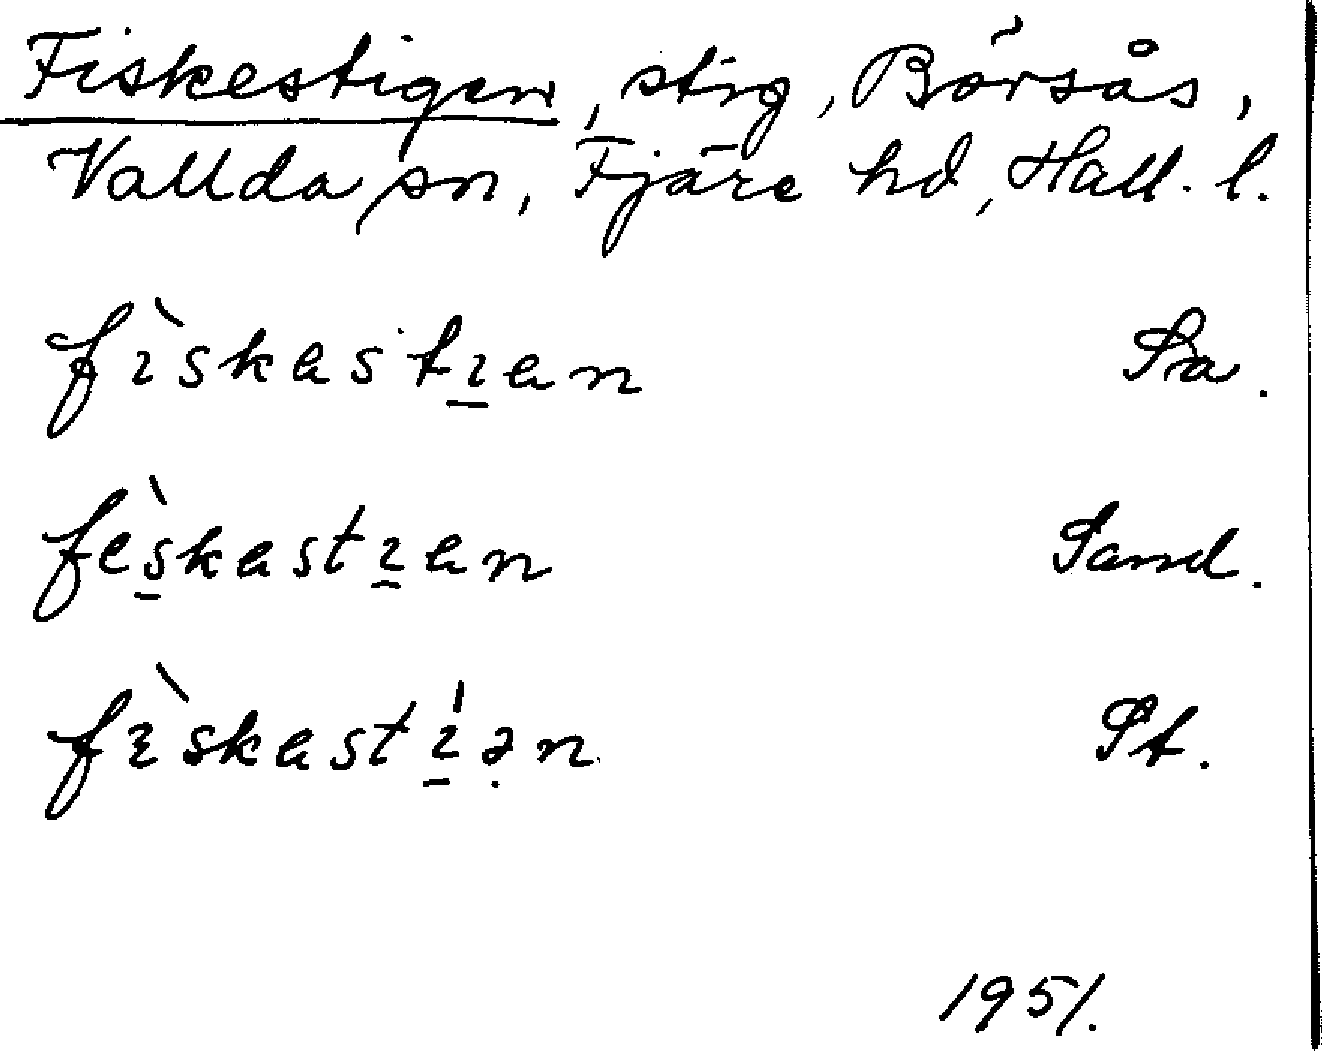 Fiskestigen, stig, Börsås,
Vallda sn, Fjäre hd, Hall. l.
fìskastɪ̠en Sa.
fès̠kastɪ̠en Sand.
fìskastɪ̠́ə̣n St.
1951.